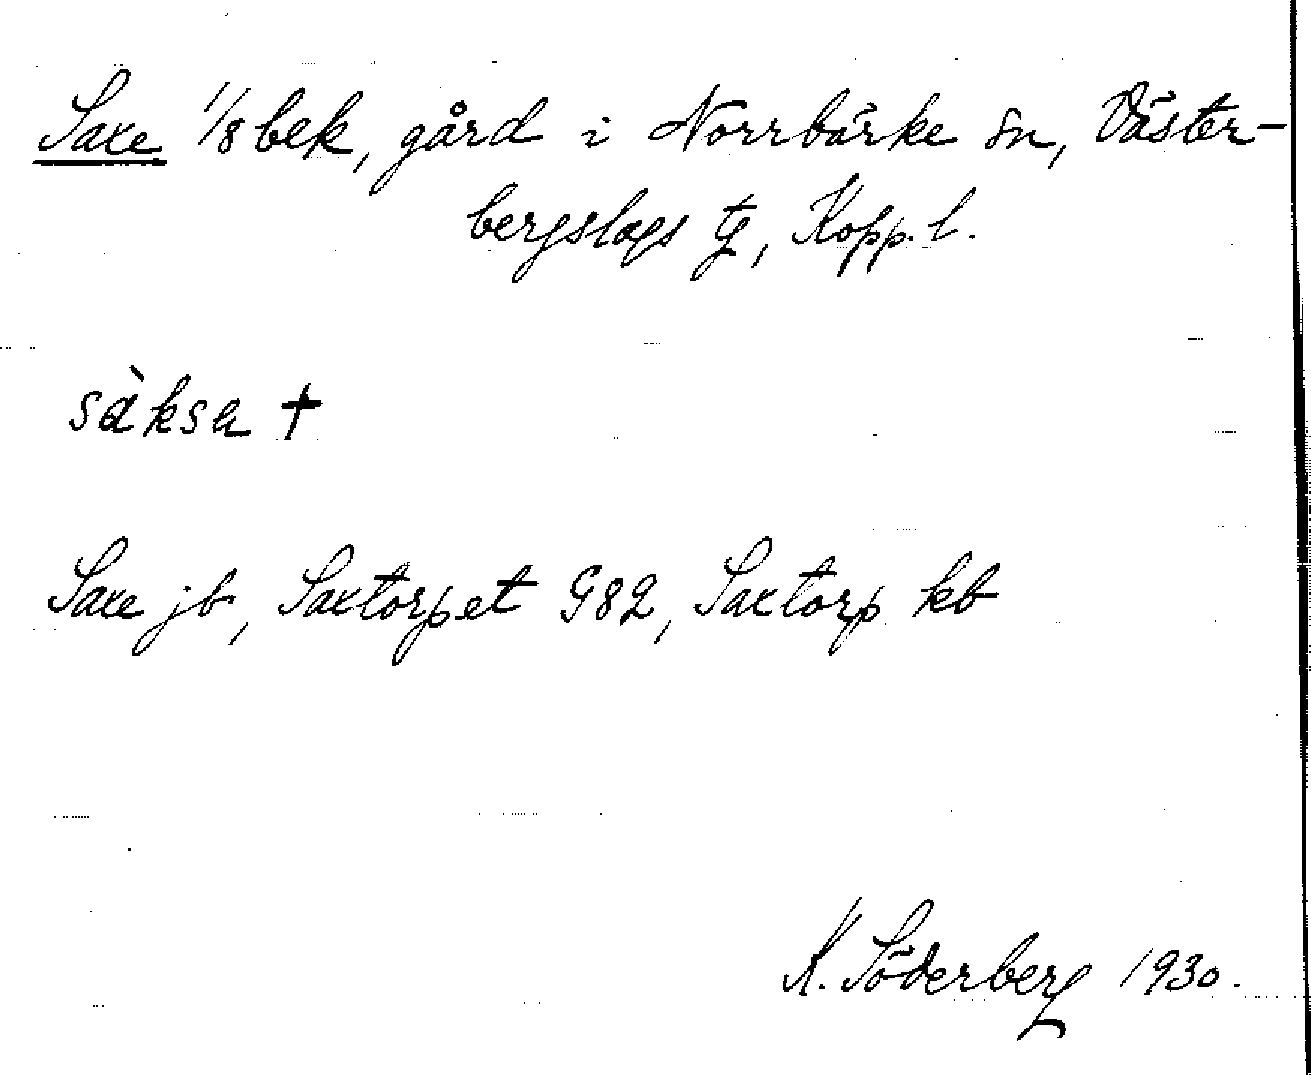 Saxe 1/8 bek, gård i Norrbärke sn, Väster-
bergslags tg, Kopp. l.
sàksa †
Saxe jb, Saxtorpet G82, Saxtorp kb
K. Söderberg 1930.